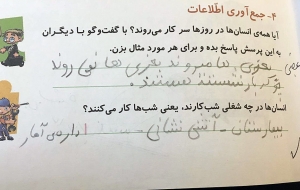 ۴- جمع‌آوری اطلاعات
آیا همه‌ی انسان‌ها در روزها سر کار می‌روند؟ با گفت‌وگو با دیگران
به این پرسش پاسخ بده و برای هر مورد مثال بزن.
بعضی میروند بعضی ها نمی روند
هستند.
انسان‌ها در چه شغلی شب‌کارند، یعنی شب‌ها کار می‌کنند؟
بیمارستان - آتش نشانی - اداره‌ی